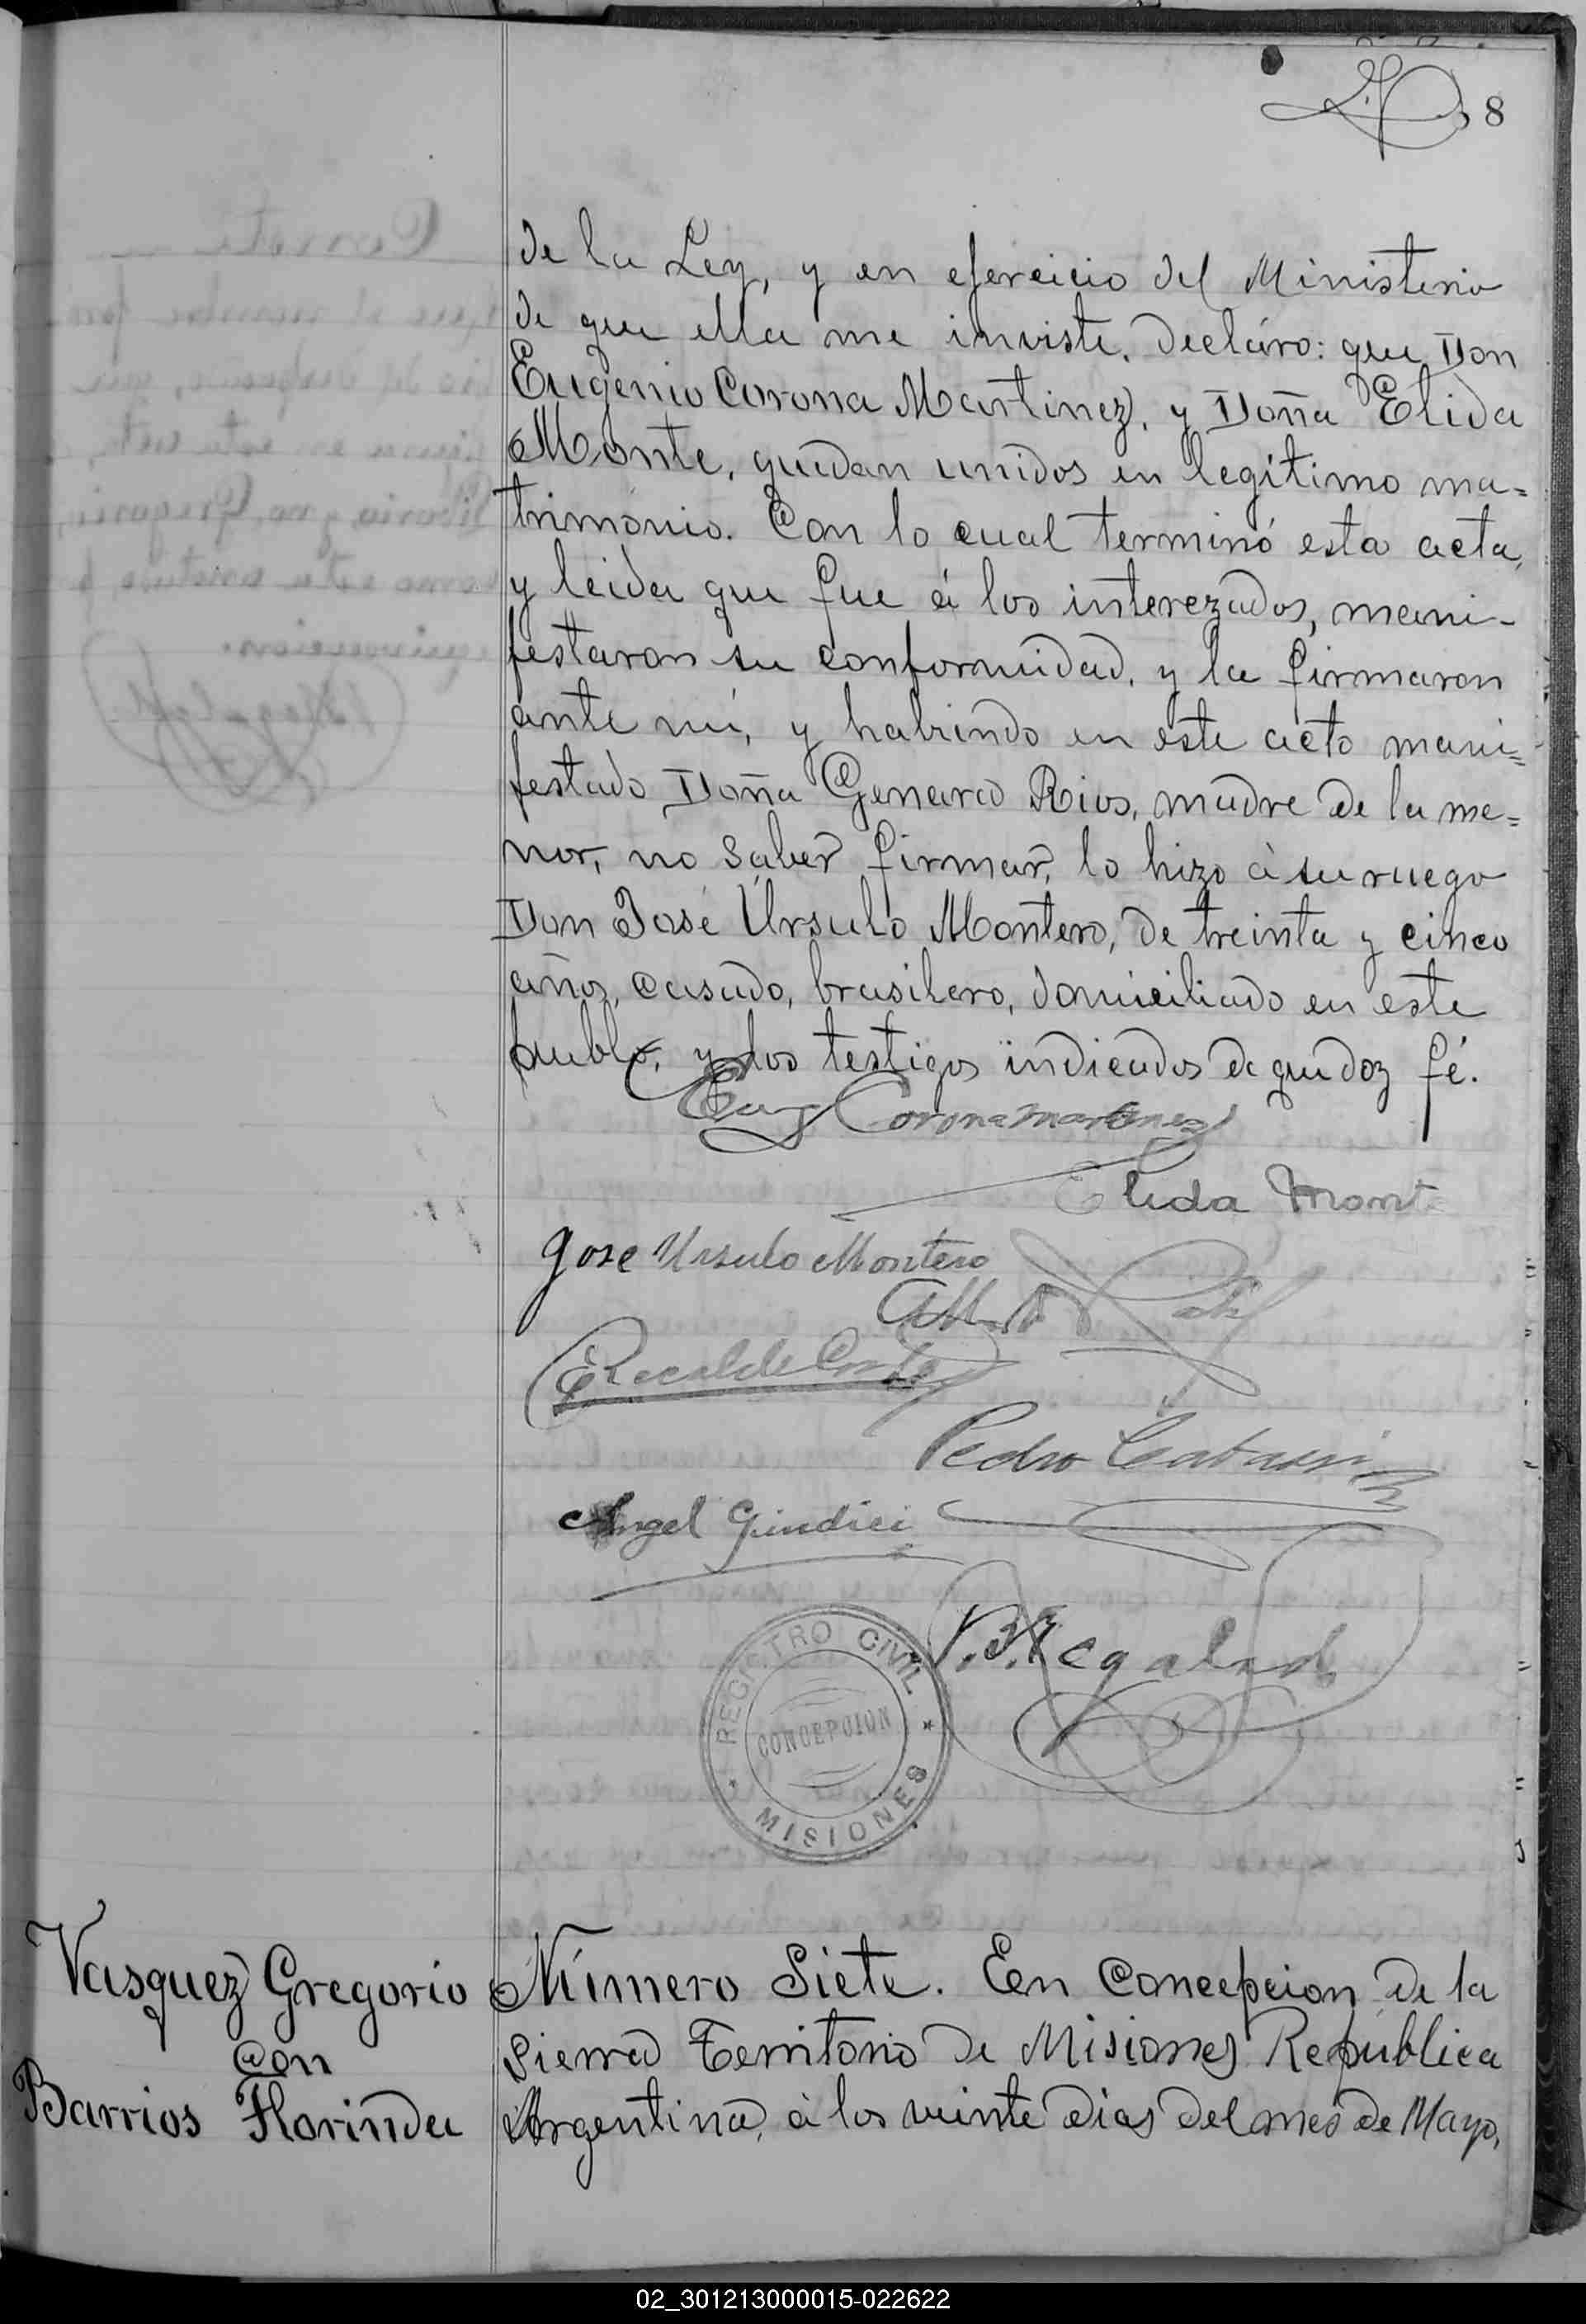 8
de la Ley, y en ejercicio del Ministerio
de que ella me inviste, declaro: que Don
Eugenio Corona Martinez, y Doña Elida
Monte, quedan unidos en legítimo ma=
trimonio. Con lo cual terminó esta acta,
y leida que fue á los interezados, mani-
festaron su conformidad, y la firmaron
ante mi, y habiendo en este acto mani=
festado Doña Genara Rios, madre de la me=
nor, no saber firmar, lo hizo à su ruego
Don José Ursulo Montero, de treinta y cinco
años, casado, brasilero, domiciliado en este
pueblo, y los testigos indicados de que doy fé.
Eug Corona Martinez
Elida Monte
Jose Ursulo Montero
E Recalde
Pedro
Angel Giudici
REGISTRO CIVIL
CONCEPCION
MISIONES
Vasquez Gregorio
con
Barrios Florinda
Número Siete. En Concepcion de la
Sierra Territorio de Misiones República
Argentina, à los veinte dias del mes de Mayo,
02_301213000015-022622